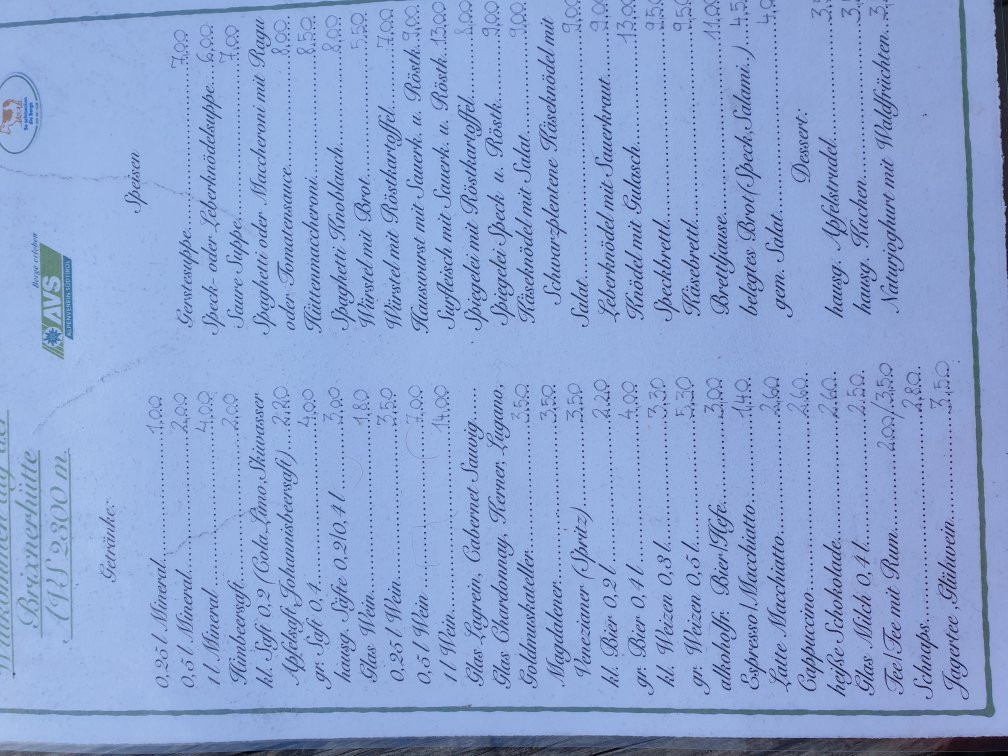 Brixnerhütte
(AVS 2300 m)
Berge erleben
AVS
ALPENVEREIN SÜDTIROL
Getränke:
0,25 l Mineral 1,00
0,5 l Mineral 2,00
1 l Mineral 4,00
Himbeersaft 2,00
kl. Saft 0,2 (Cola, Limo, Skiwasser
Apfelsaft, Johannisbeersaft) 2,20
gr. Saft 0,4 4,00
hausg. Säfte 0,2/0,4 l 3,00
Glas Wein 1,80
0,25 l Wein 3,50
0,5 l Wein 7,00
1 l Wein 14,00
Glas Lagrein, Cabernet Sauvig.
Glas Chardonnay, Kerner, Lugano,
Goldmuskateller 3,50
Magdalener 3,50
Venezianer (Spritz) 3,50
kl. Bier 0,2 l 2,20
gr. Bier 0,4 l 4,00
kl. Weizen 0,3 l 3,30
gr. Weizen 0,5 l 5,30
alkoholfr. Bier/Hefe 3,00
Espresso/Macchiatto 1,40
Latte Macchiatto 2,60
Cappuccino 2,60
heiße Schokolade 2,60
Glas Milch 0,4 l 2,50
Tee/Tee mit Rum 2,00/3,50
Schnaps 2,80
Jagertee, Glühwein 3,50
Speisen
Gerstesuppe 7,00
Speck- oder Leberknödelsuppe 6,00
Saure Suppe 7,00
Spaghetti oder Maccheroni mit Ragu
oder Tomatensauce 8,00
Hüttenmaccheroni 8,50
Spaghetti Knoblauch 8,00
Würstel mit Brot 5,50
Würstel mit Röstkartoffel 7,00
Hauswurst mit Sauerk. u. Röstk. 9,00
Surfleisch mit Sauerk. u. Röstk. 13,00
Spiegelei mit Röstkartoffel 8,00
Spiegelei Speck u. Röstk. 9,00
Käseknödel mit Salat 9,00
Schwarzplentene Käseknödel mit
Salat 9,00
Leberknödel mit Sauerkraut 9,00
Knödel mit Gulasch 13,00
Speckbrettl 9,50
Käsebrettl 9,50
Brettljause 11,00
belegtes Brot (Speck, Salami..) 4,5
gem. Salat 4,0
Dessert:
hausg. Apfelstrudel
hausg. Kuchen
Naturjoghurt mit Waldfrüchten